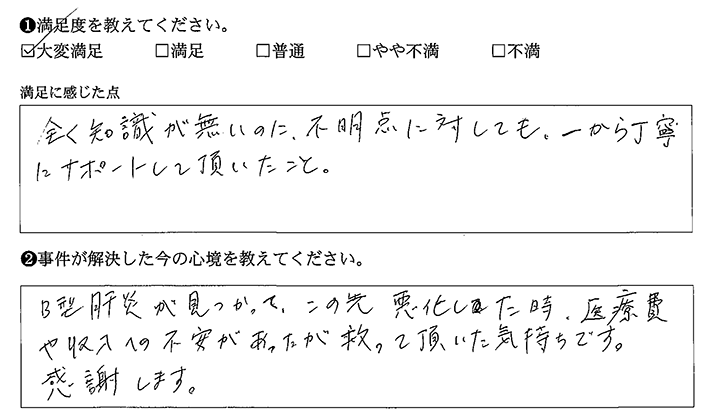 ❶満足度を教えてください。
☑大変満足 □満足 □普通 □やや不満 □不満
満足に感じた点
全く知識が無いのに、不明点に対しても、一から丁寧
にサポートして頂いたこと。
❷事件が解決した今の心境を教えてください。
B型肝炎が見つかって、この先悪化した時、医療費
や収入への不安があったが救って頂いた気持ちです。
感謝します。